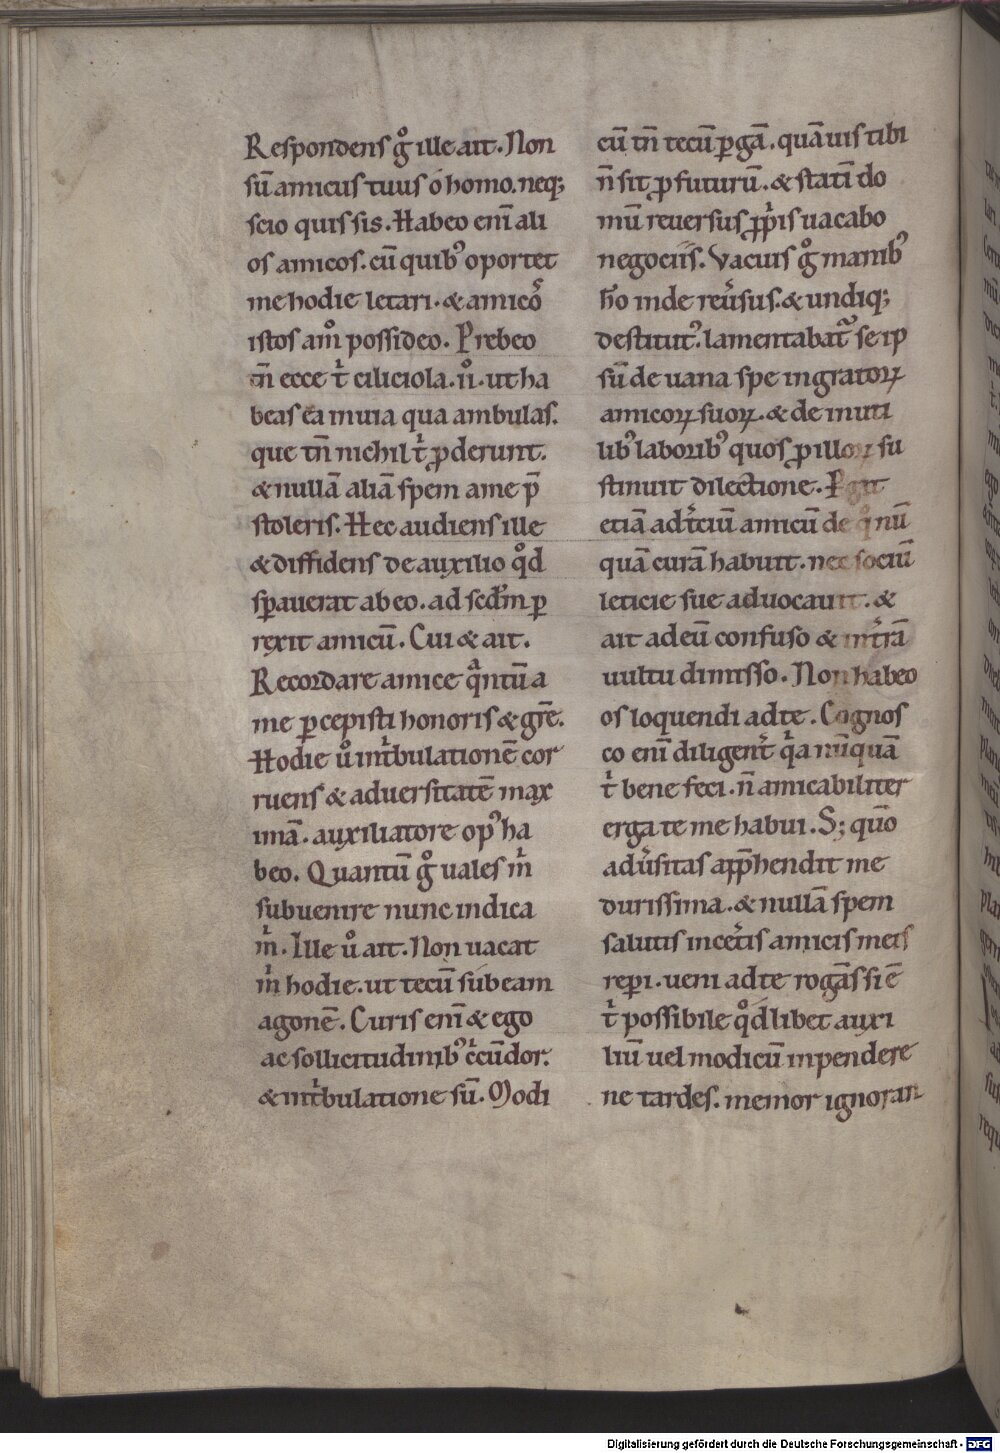 Respondens gͦ ille ait. Non
sū amicus tuus o homo. neq;
scio quis sis. Habeo eni̅ ali
os amicos. cū quib᾽ oportet
me hodie letari. & amico᷒
istos am̊ possideo. Prebeo
tn̄ ecce tͥ ciliciola. ii̊. ut ha
beas ea in uia qua ambulas.
que tn̄ nichil tͥ ꝓderunt.
& nullā aliā spem a me p̄
stoleris. Hec audiens ille
& diffidens de auxilio qͦd
sꝑauerat ab eo. ad scd̄m ꝑ
rexit amicū. Cui & ait.
Recordare amice qͣntū a
me ꝑcepisti honoris & gr̄e.
Hodie uͦ in tͥbulationē cor
ruens & aduersitatē max
imā. auxiliatore op᾽ ha
beo. Quantū gͦ uales mͥ
subuenire nunc indica
mͥ. Ille uͦ ait. Non uacat
mͥ hodie. ut tecū subeam
agonē. Curis eni̅ & ego
ac sollicitudinib᾽ cͥcūdor.
& in tͥbulatione sū. Modi
cū tn̄ tecū ꝑgā. quāuis tibi
n̄ sit ꝓfuturū. & stati̅ do
mū reuersus ꝓpͥis uacabo
negociis. Vacuis gͦ manib᾽
h̊o inde reu̓sus. & undiq;
destitut᾽. lamentabat᷑ se ip
sū de uana spe ingratoꝝ
amicoꝝ suoꝝ. & de inuti
lib᾽ laborib᾽ quos ꝓ illoꝝ su
stinuit dilectione. Pgit
etiā ad tͨiū amicū de qͦ nū
quā curā habuit. nec sociū
leticie sue aduocauit. &
ait ad eū confuso & in tͬrā
uultu dimisso. Non habeo
os loquendi ad te. Cognos
co eni̅ diligent̓ qͥa nūquā
tͥ bene feci. n̄ amicabiliter
erga te me habui. S; quo̅
adu̓sitas app̄hendit me
durissima. & nullā spem
salutis in cet̓is amicis meis
reꝑi. ueni ad te rogās si ē
tͥ possibile qͦdlibet auxi
liū uel modicū inpendere
ne tardes. memor ignoran
Digitalisierung gefördert durch die Deutsche Forschungsgemeinschaft - DFG